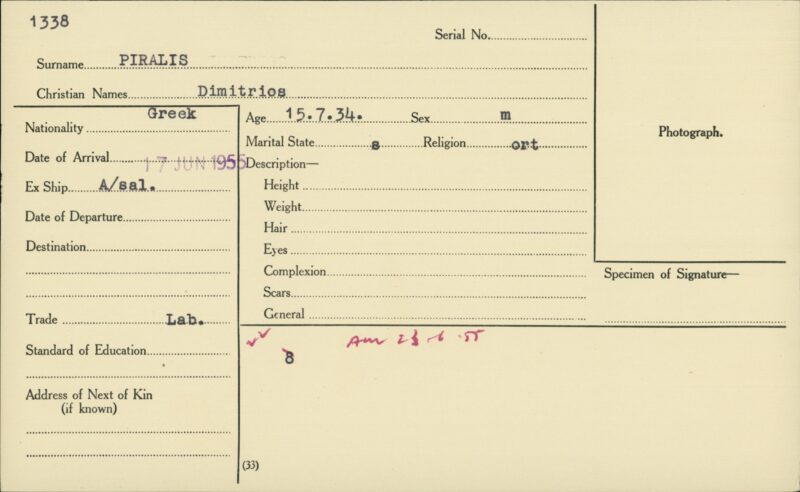 1338
Serial No.
Surname PIRALIS
Christian Names Dimitrios
Nationality Greek
Date of Arrival 17 JUN 1955
Ex Ship A/sal.
Date of Departure
Destination
Trade Lab.
Standard of Education
Address of Next of Kin
(if known)
Age 15.7.34. Sex m
Marital State s Religion ort
Description—
Height
Weight
Hair
Eyes
Complexion
Scars
General
8
(33)
Photograph.
Specimen of Signature—